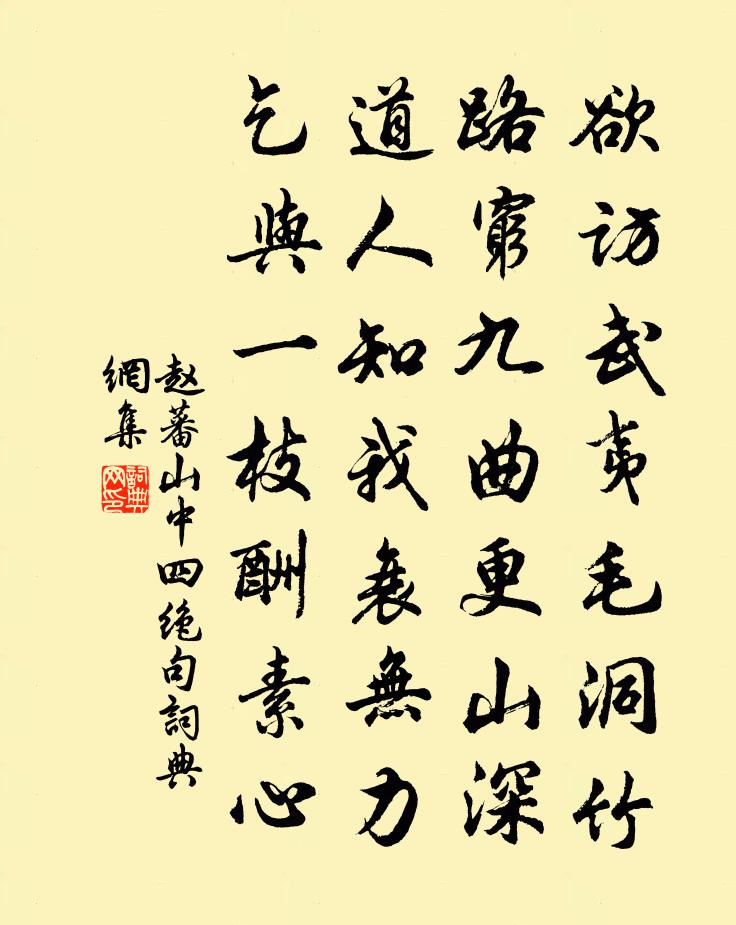 欲訪武夷毛洞竹
路窮九曲更山深
道人知我衰無力
乞與一枝酬素心
赵蕃山中四绝句詞典
網集
詞典
网印